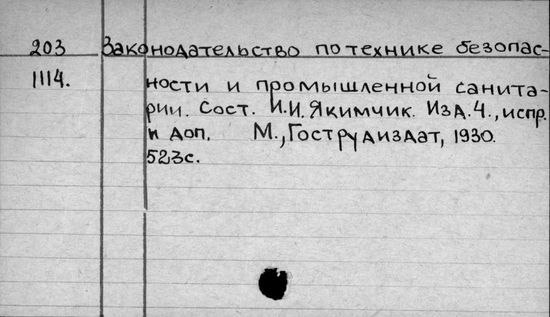 203 Законодательство по технике безопас-
1114. ности и промышленной санита-
рии. Сост. И.И. Якимчик. Изд.4., испр.
и доп. М., Гострудиздат, 1930.
523с.